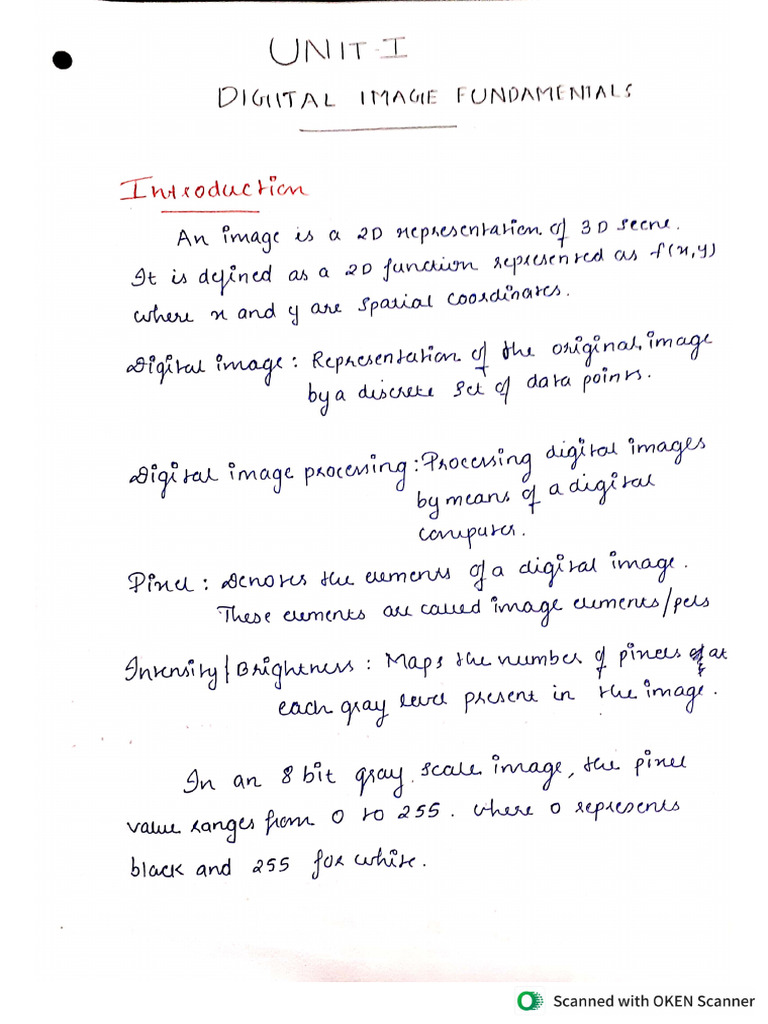 UNIT-I
DIGITAL IMAGE FUNDAMENTALS
Introduction
An image is a 2D representation of 3D scene.
It is defined as a 2D function represented as f(x,y)
where x and y are spatial coordinates.
Digital image : Representation of the original image
by a discrete set of data points.
Digital image processing : Processing digital images
by means of a digital
computer.
Pixel : Denotes the elements of a digital image.
These elements are called image elements/pels
Intensity/Brightness : Maps the number of pixels at
each gray level present in the image.
In an 8 bit gray scale image, the pixel
value ranges from 0 to 255. where 0 represents
black and 255 for white.
Scanned with OKEN Scanner